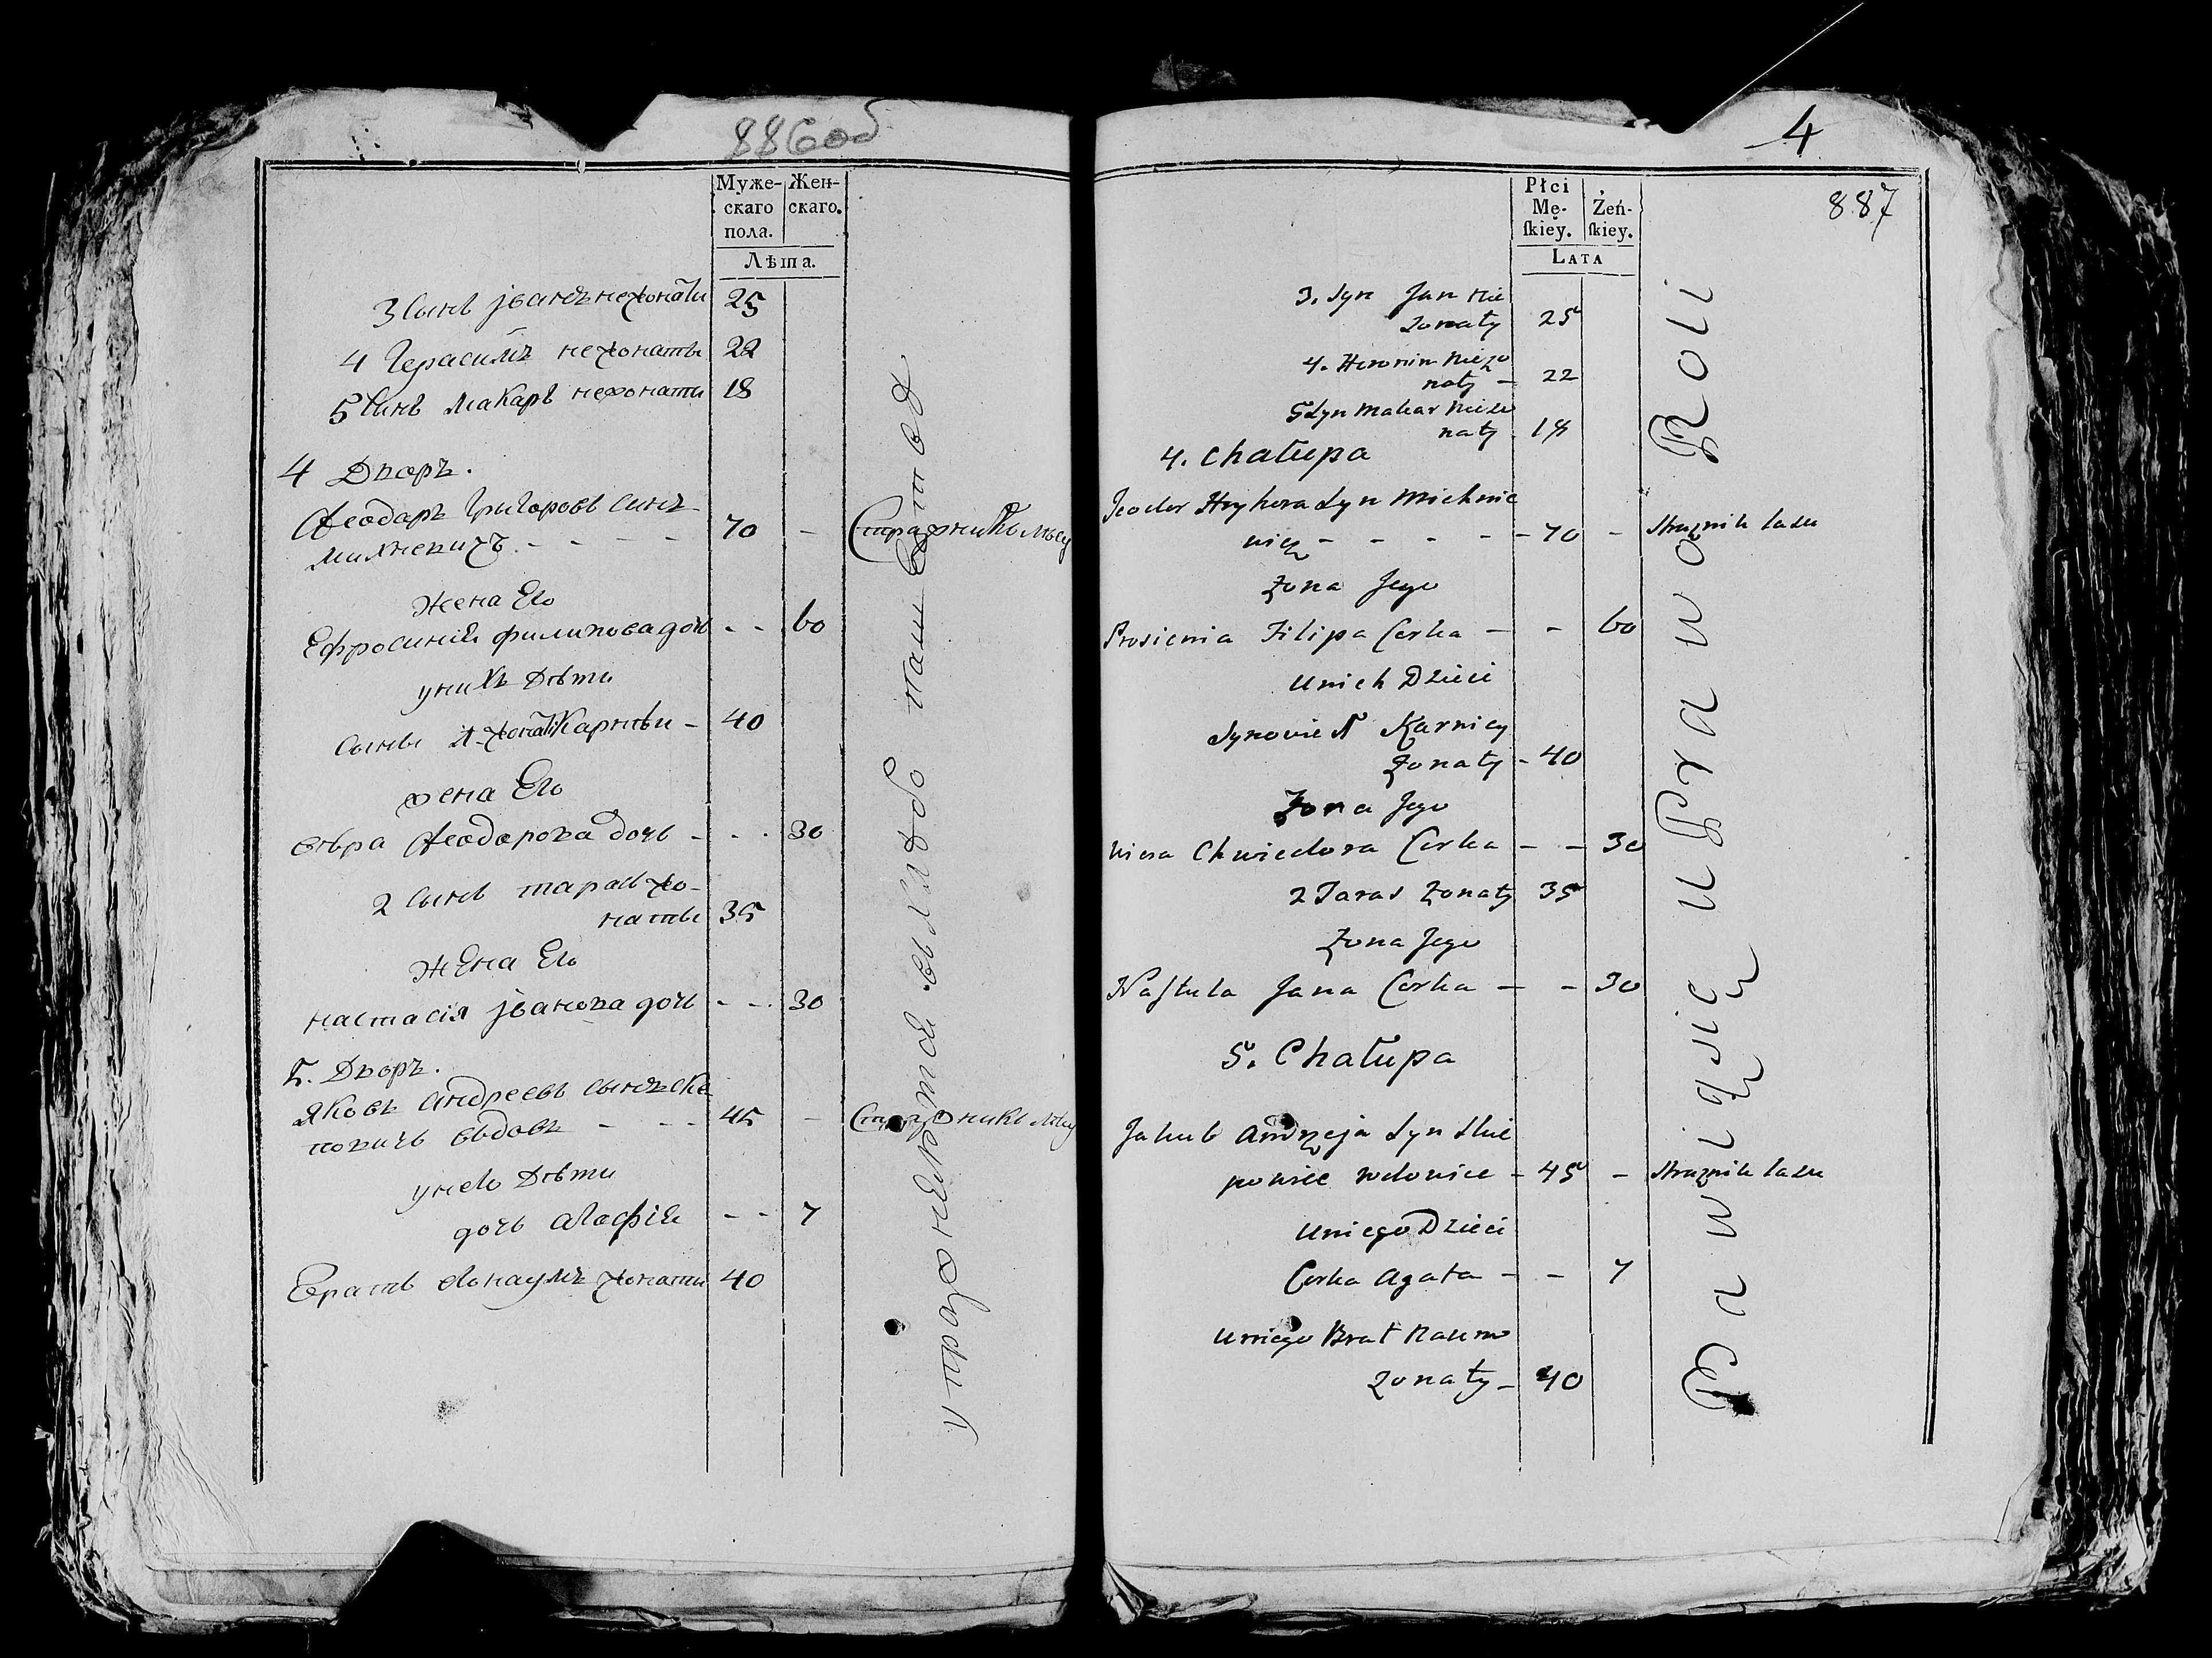 886об
Муже-
скаго
пола.
Жен-
скаго.
Лѣта.
3 сынъ јванъ нежонаты 25
4 Герасимъ нежонаты 22
5 сынъ Макаръ нежонаты 18
4 Дворъ.
Ѳеодаръ Григоровъ сынъ
Михневичъ - - - - 70 - Стражникъ лѣсу
жена Его
Ефросиния филипова дочь - - 60
у нихъ Дѣти
сыны 1 жонаты Карнѣи - 40
жена Его
вѣра Ѳеодорова дочь - - - 30
2 сынъ тарасъ жо-
наты 35
жена Его
настасія јванова дочь - - - 30
5. Дворъ.
Яковъ андреевъ сынъ
вдовъ - - - 45 - Стражникъ лѣсу
у него Дѣти
дочь агафія - - 7
братъ его наумъ жонаты 40
4
887
Płci
Mę-
ſkiey.
Żeń-
ſkiey.
LATA
3. Syn Jan nie
żonaty 25
4. Heronim nieżo
naty - 22
5 Syn Makar nieżo
naty 18
4. Chałupa
Teodor Hryhora Syn Michnie
wicz - - - - - 70 - Strażnik lasu
Żona Jego
Prosienia Filipa Corka - - 60
U nich Dzieci
Synowie 1 Karniey
Żonaty - 40
Żona Jego
Wiera Chwiedora Corka - - 30
2 Taras Żonaty 35
Żona Jego
Naſtula Jana Corka - - 30
5. Chałupa
Jakub Andrzeja Syn Skie
powicz wdowiec - 45 - Strażnik lasu
U niego Dzieci
Corka Agata - - 7
U niego Brat Naum
żonaty - 40
Bawi się uprawą Roli